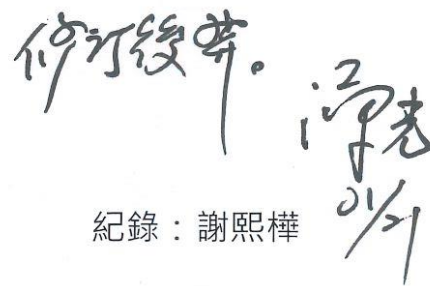 修訂後發。
01/21
紀錄：謝熙樺